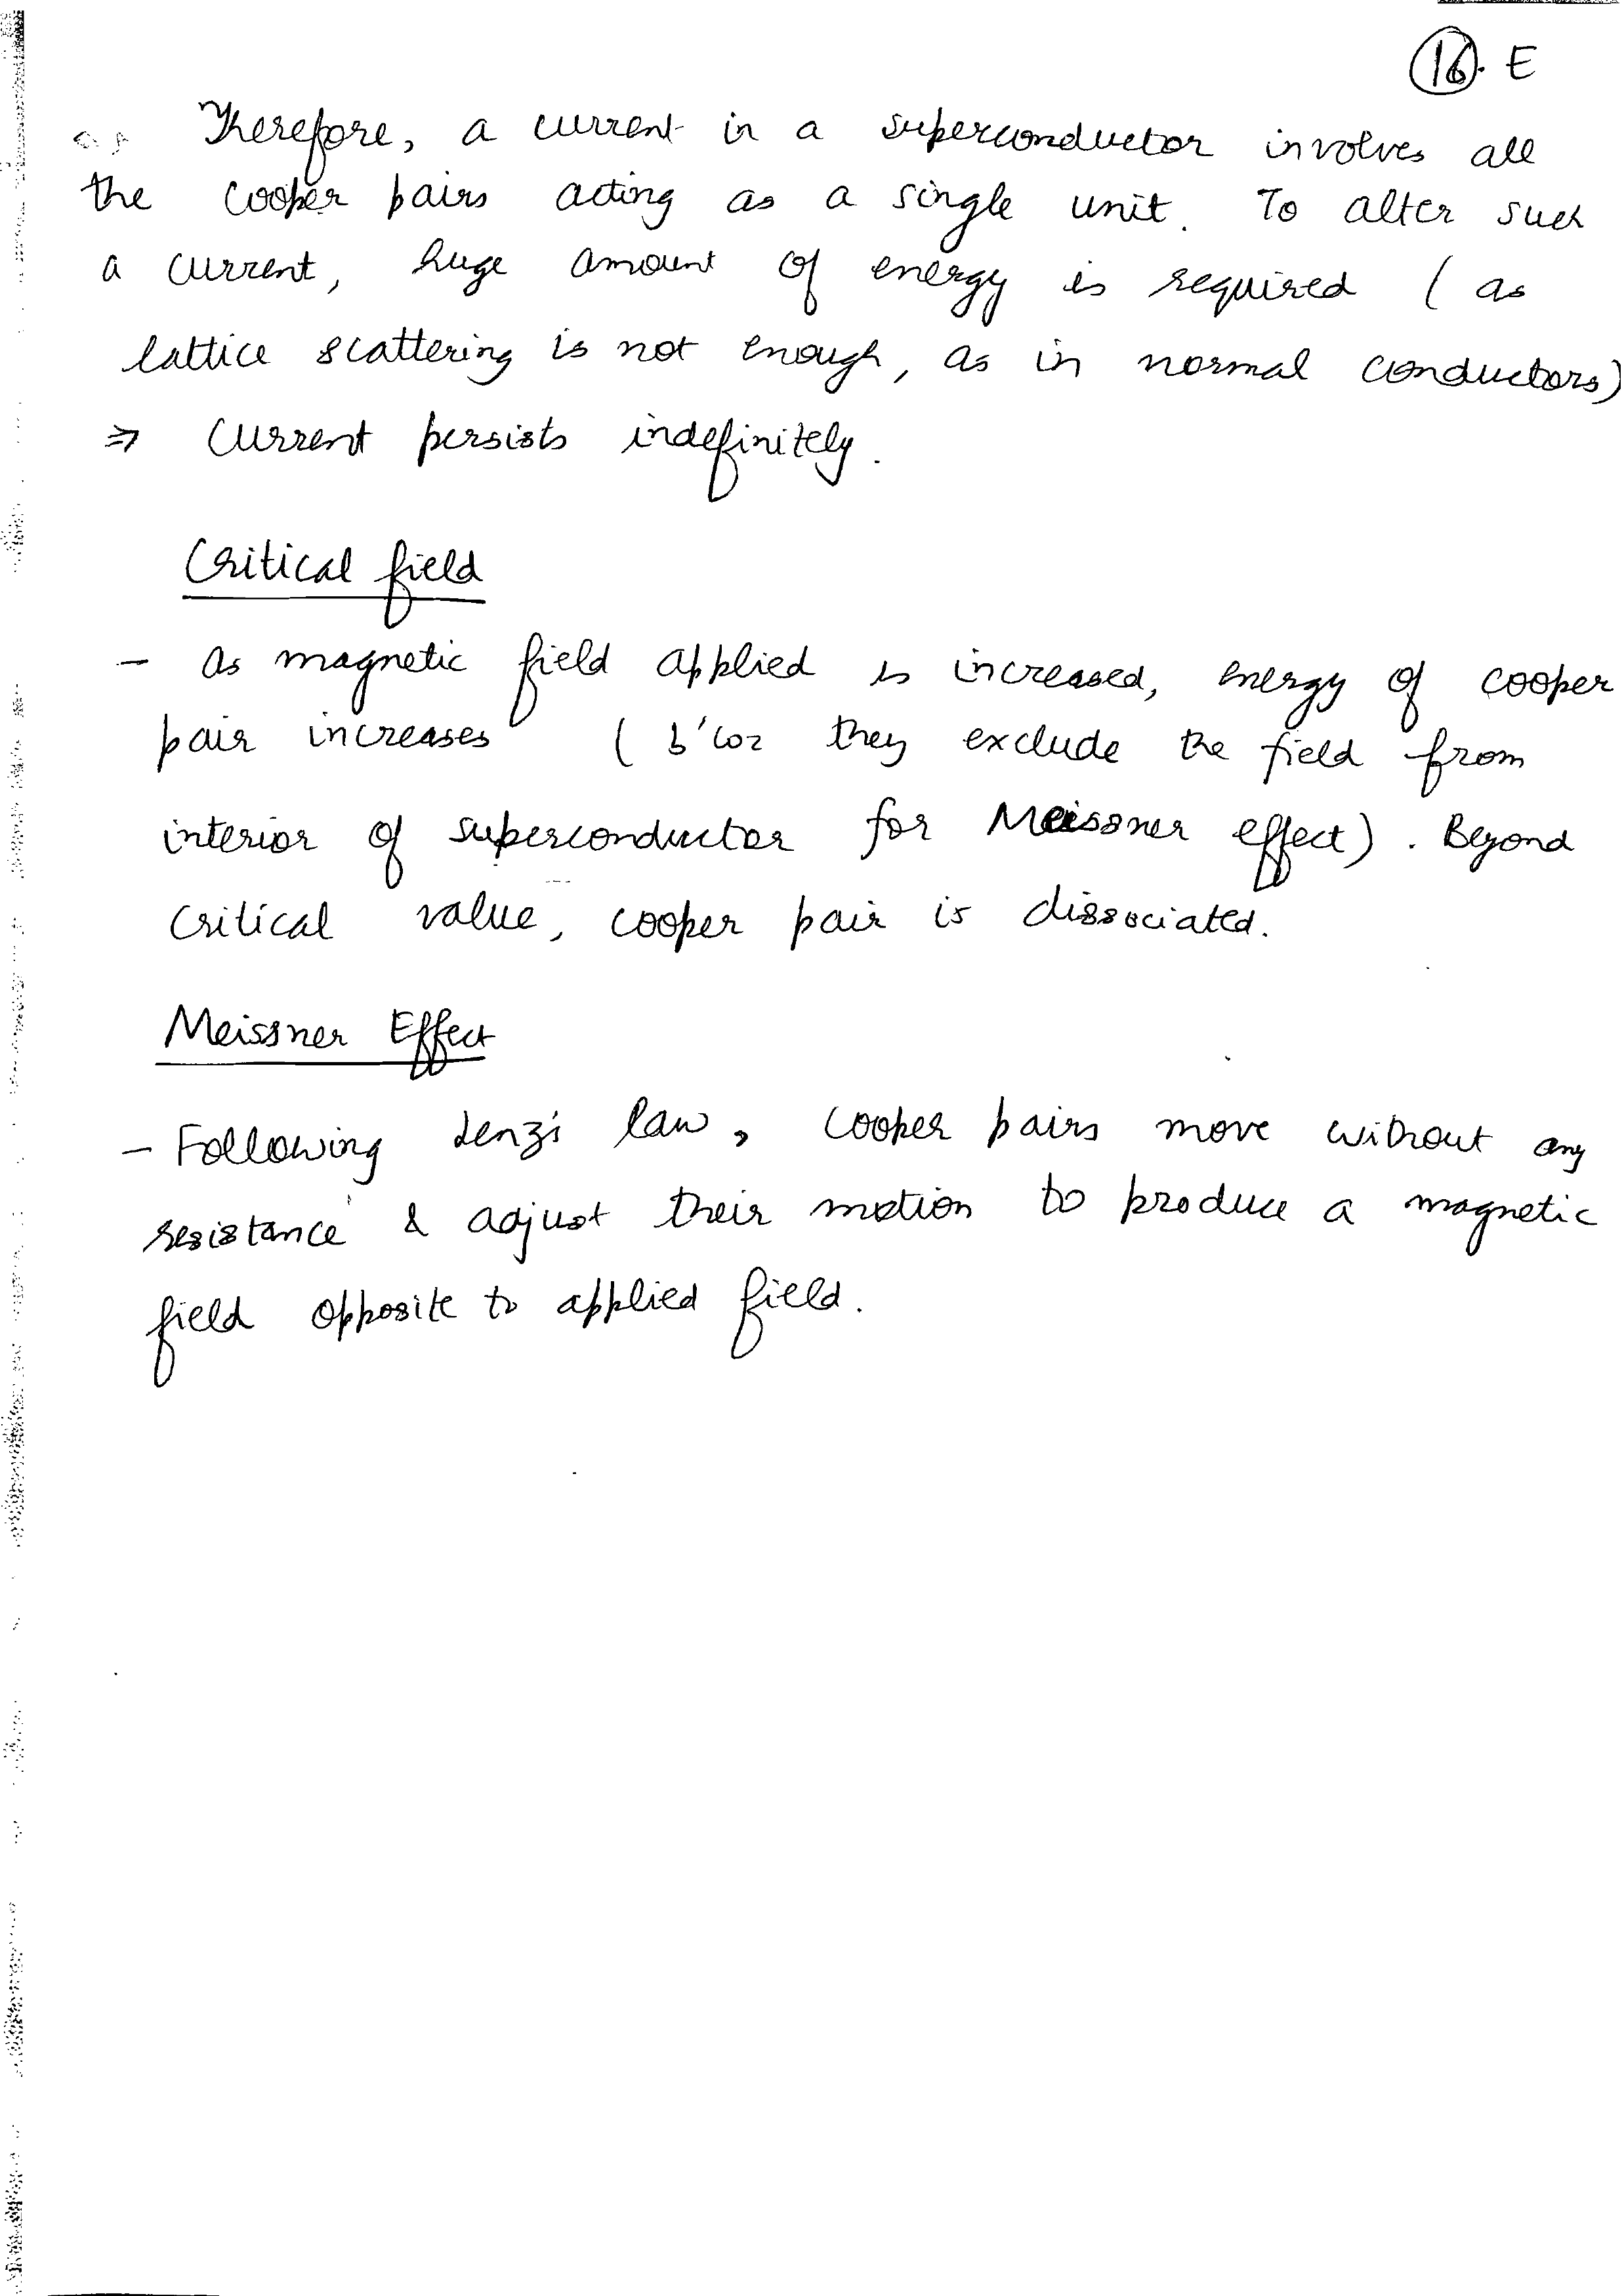 16. E
Therefore, a current in a superconductor involves all
the cooper pairs acting as a single unit. To alter such
a current, huge amount of energy is required (as
lattice scattering is not enough, as in normal conductors)
⇒ current persists indefinitely.
Critical field
- As magnetic field applied is increased, energy of cooper
pair increases (b'coz they exclude the field from
interior of superconductor for Meissner effect). Beyond
critical value, cooper pair is dissociated.
Meissner Effect
- Following Lenz's law, cooper pairs move without any
resistance & adjust their motion to produce a magnetic
field opposite to applied field.